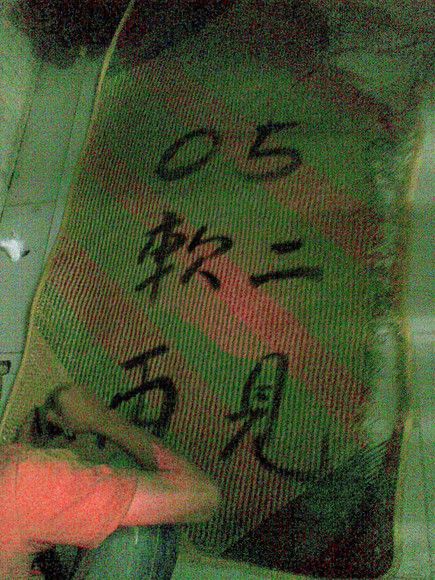 05
軟二
再見